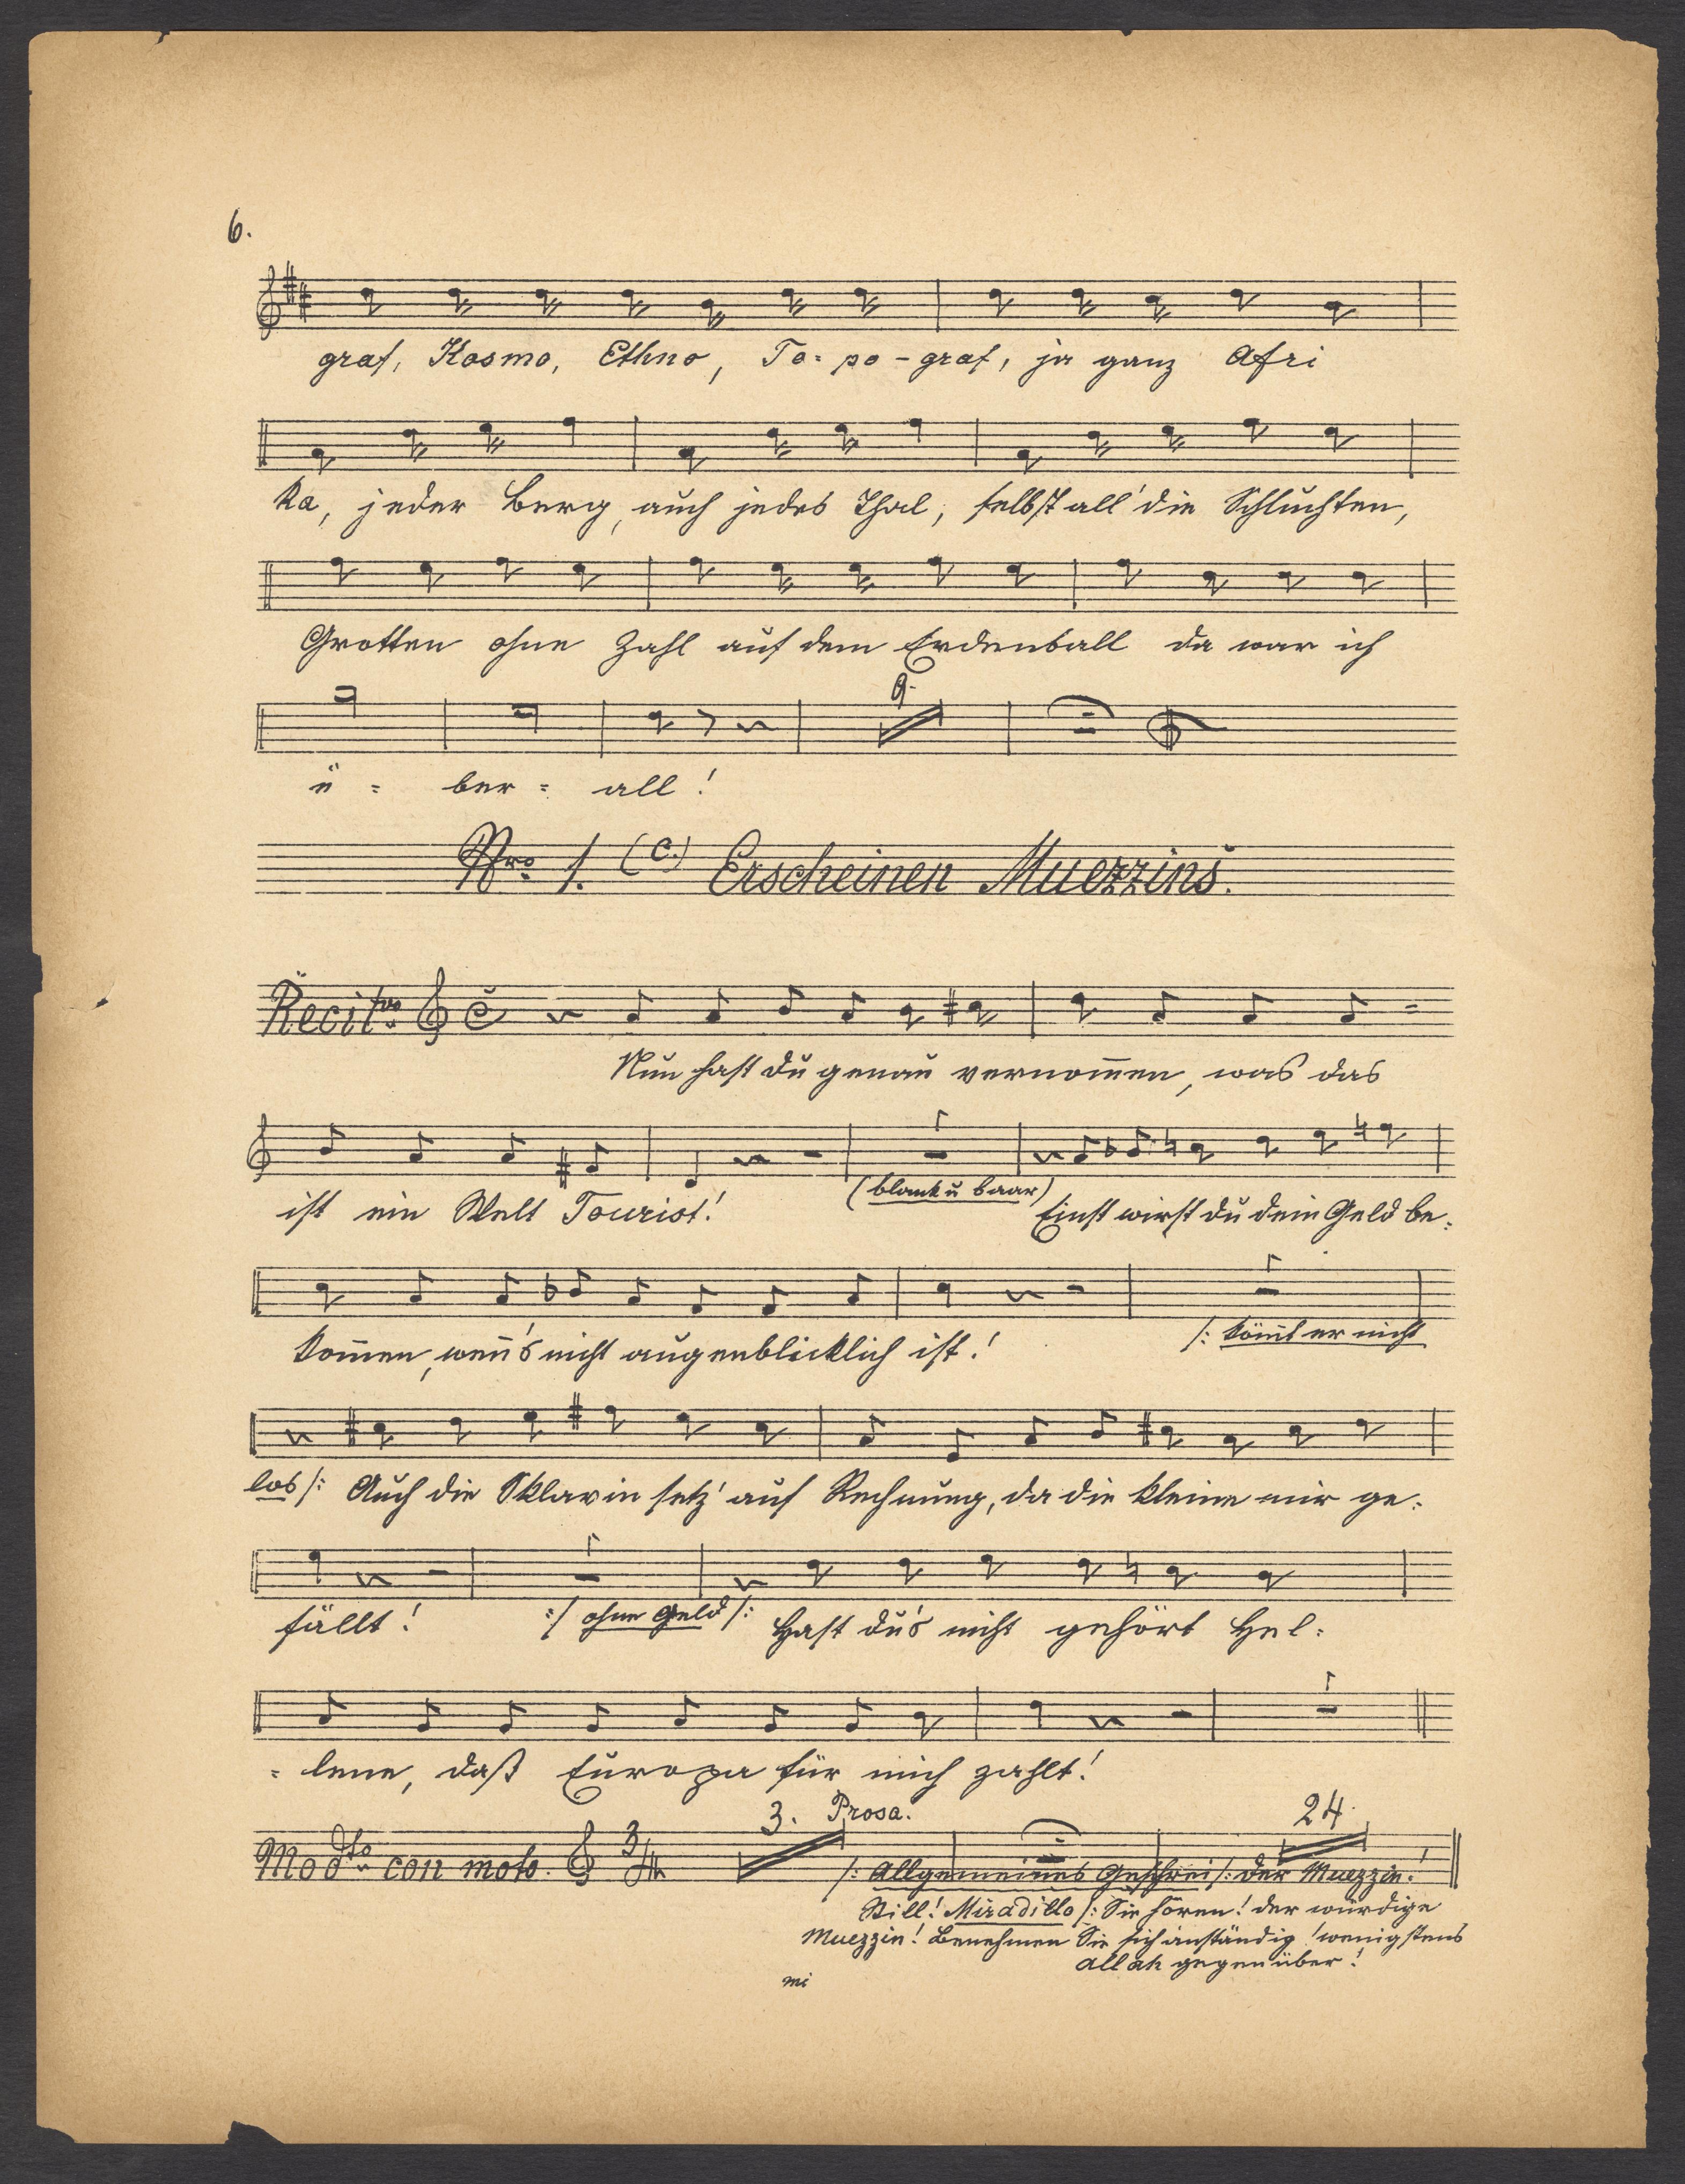 6.
graf, Kosmo, Ethno, To= po - graf, ja ganz Afri
ka, jeder Berg, auch jedes Thal, selbst all' die Schluchten,
Grotten ohne Zahl auf dem Erdenball da war ich
9.
ü = ber = all!
Nro 1. (C.) Erscheinen Muezzins.
Recit.vo
Nun hast du genau vernom̅en, was das
ist ein Welt Tourist! (blank u baar) Einst wirst du dein Geld be=
kom̅en, wen̅'s nicht augenblicklich ist! /: kön̅t er nicht
los /: Auch die Sklavin setz' auf Rechnung, da die Kleine mir ge=
fällt! :/ ohne Geld /: Hast du's nicht gehört Hel=
= lene, daß Europa für mich zahlt!
3. Prosa. 24.
Modto con moto. 3/4 /: Allgemeines Geschrei /: Der Muezzin!
Still! Miradillo /: Sie hören! der würdige
Muezzin! Benehmen Sie sich anständig! wenigstens
Allah gegenüber!
mi